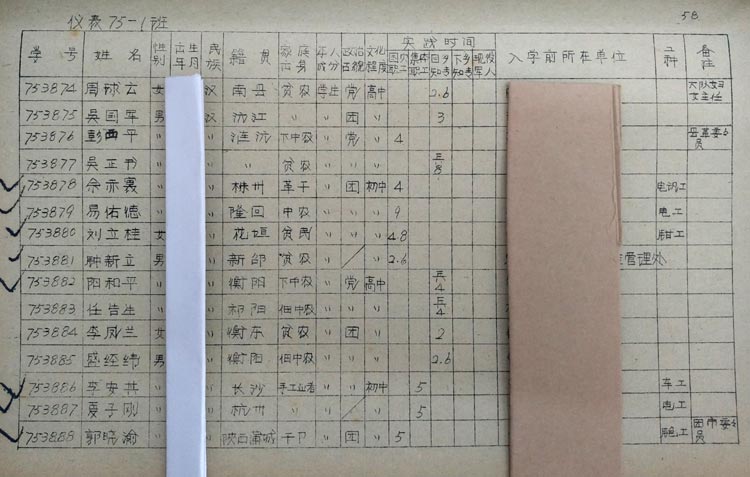 仪表75-1班
58
学号 姓名 性别 出生年月 民族 籍贯 家庭出身 本人成分 政治面貌 文化程度 实践时间 入学前所在单位 工种 备注
集体职工 回乡知青 下乡知青 现役军人
753874 周球云 女 汉 南县 贫农 学生 党 高中 2.6 大队妇女主任
753875 吴国军 男 汉 沅江 〃 〃 团 〃 3
753876 彭西平 〃 〃 涟沅 下中农 〃 党 〃 4 县革委委员
753877 吴正 〃 〃 〃 贫农 〃 〃 〃 兵8
753878 余亦襄 〃 〃 株州 革干 〃 团 初中 4 电锅工
753879 易佑德 〃 〃 隆回 中农 〃 〃 〃 9 电工
753880 刘立桂 女 〃 花垣 贫民 〃 〃 〃 4.8 钳工
753881 钟新立 男 〃 新邵 贫农 〃 〃 2.6 管理处
753882 阳和平 〃 〃 衡阳 下中农 〃 党 高中 兵4
753883 任告生 〃 〃 祁阳 佃中农 〃 〃 〃 兵4
753884 李凤兰 女 〃 衡东 贫农 〃 团 〃 2
753885 盛经纬 男 〃 衡阳 佃中农 〃 〃 〃 2.6
753886 李安共 〃 〃 长沙 手工业者 〃 〃 初中 5 车工
753887 夏子刚 〃 〃 杭州 〃 〃 〃 5 电工
753888 郭晓渝 〃 〃 陕西蒲城 干卩 〃 团 〃 5 鉋工 团市委委员